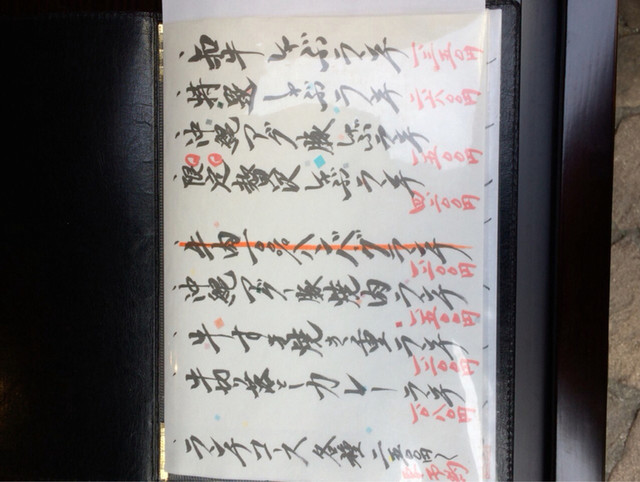 和牛しゃぶランチ
一三五〇円
特選しゃぶランチ
二六〇〇円
沖縄アグー豚しゃぶランチ
一五〇〇円
限定贅沢しゃぶランチ
四二〇〇円
牛肉一〇〇%ハンバーグランチ
一二〇〇円
沖縄アグー豚焼肉ランチ
一五〇〇円
牛すき焼き重ランチ
一二〇〇円
牛切落としカレーランチ
一〇八〇円
ランチコース各種二五〇〇円〜
要予約